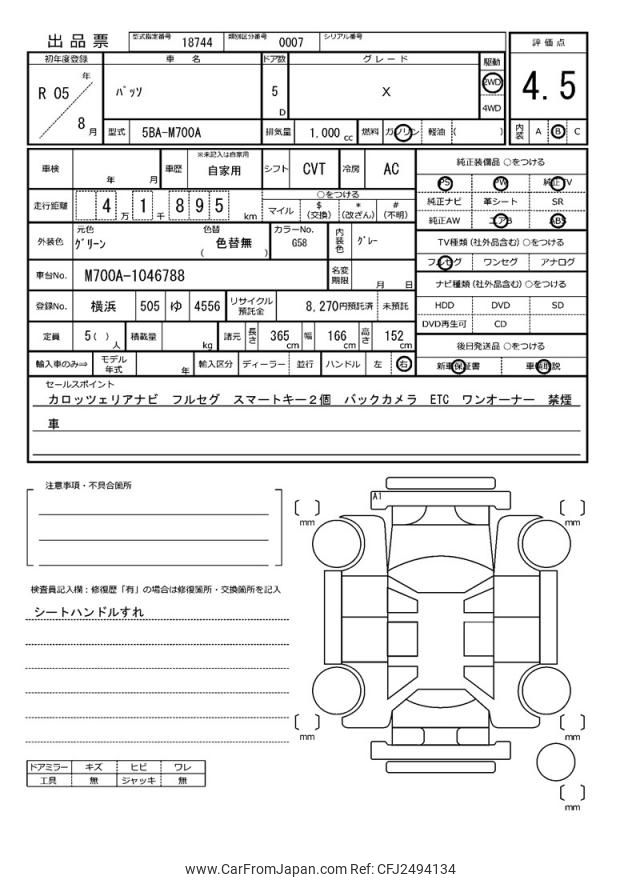 出品票 型式指定番号 18744 類別区分番号 0007 シリアル番号
評価点
4.5
内装 A B C
初年度登録 車名 ドア数 グレード 駆動
R 05 年 8 月
パッソ
5 D
X
2WD
4WD
型式 5BA-M700A 排気量 1.000 cc 燃料 ガソリン 軽油 ( )
車検 年 月 車歴 ※未記入は自家用 自家用 シフト CVT 冷房 AC
走行距離 4 万 1 千 8 9 5 km
○をつける
マイル $(交換) *(改ざん) #(不明)
外装色 元色 グリーン 色替 色替無 ( ) カラーNo. G58 内装色 グレー
車台No. M700A-1046788 名変期限 月 日
登録No. 横浜 505 ゆ 4556 リサイクル預託金 8,270円預託済 未預託
定員 5( )人 積載量 kg 諸元 長さ 365cm 幅 166cm 高さ 152cm
輸入車のみ⇒ モデル年式 年 輸入区分 ディーラー 並行 ハンドル 左 右
純正装備品 ○をつける
PS PW 純正TV
純正ナビ 革シート SR
純正AW エアB ABS
TV種類 (社外品含む) ○をつける
フルセグ ワンセグ アナログ
ナビ種類 (社外品含む) ○をつける
HDD DVD SD
DVD再生可 CD
後日発送品 ○をつける
新車保証書 車輌取説
セールスポイント
カロッツェリアナビ フルセグ スマートキー2個 バックカメラ ETC ワンオーナー 禁煙
車
注意事項・不具合箇所
検査員記入欄：修復歴「有」の場合は修復箇所・交換箇所を記入
シートハンドルすれ
A1
mm
mm
mm
mm
mm
ドアミラー キズ ヒビ ワレ
工具 無 ジャッキ 無
www.CarFromJapan.com Ref: CFJ2494134